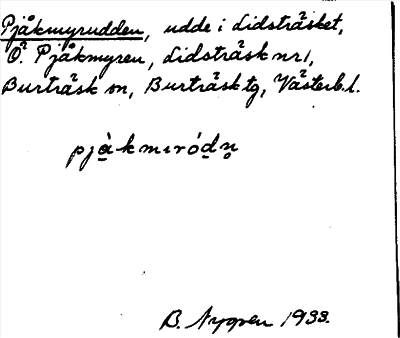 Pjåkmyrudden, udde i Lidsträsket,
Ö. Pjåkmyren, Lidsträsk nr 1,
Burträsk sn, Burträsk tg, Västerb. l.
pjàkmıródn̥
B. Nygren 1933.